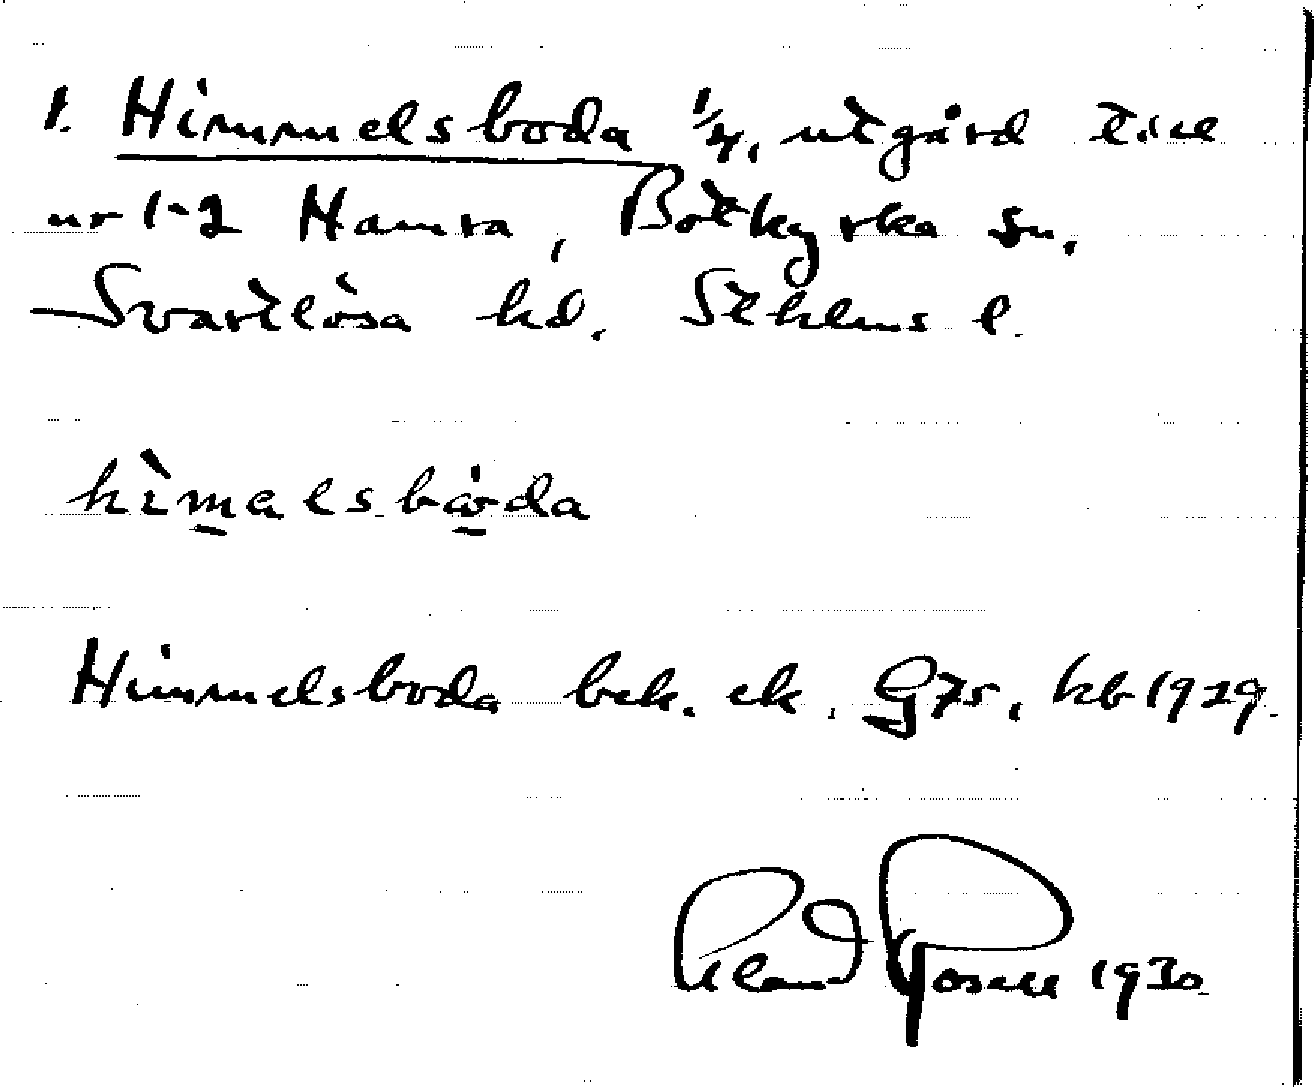 1. Himmelsboda 1/4, utgård till
nr 1-2 Hamra, Botkyrka sn.
Svartlösa hd. Sthlms l.
himalsbåda
Himmelsboda bek. ek. G75, hb 1929.
1930